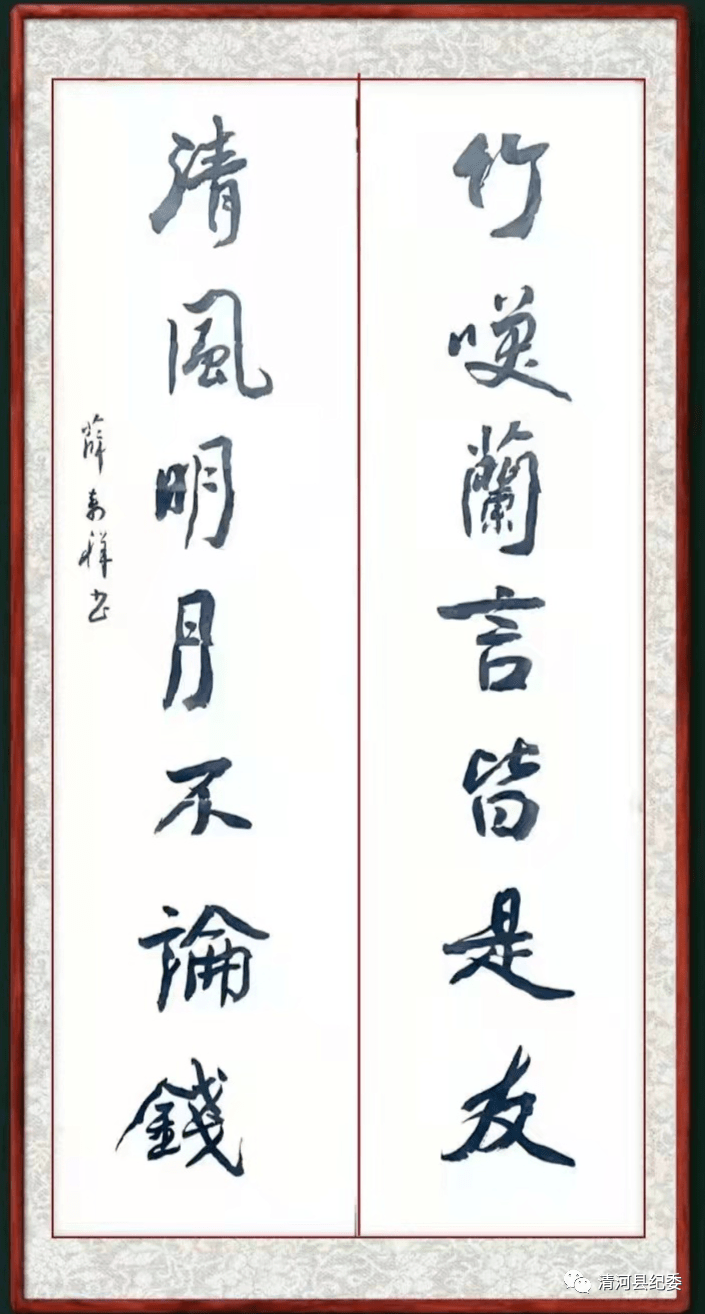 竹咲蘭言皆是友
清風明月不論錢
薛祥书
清河县纪委